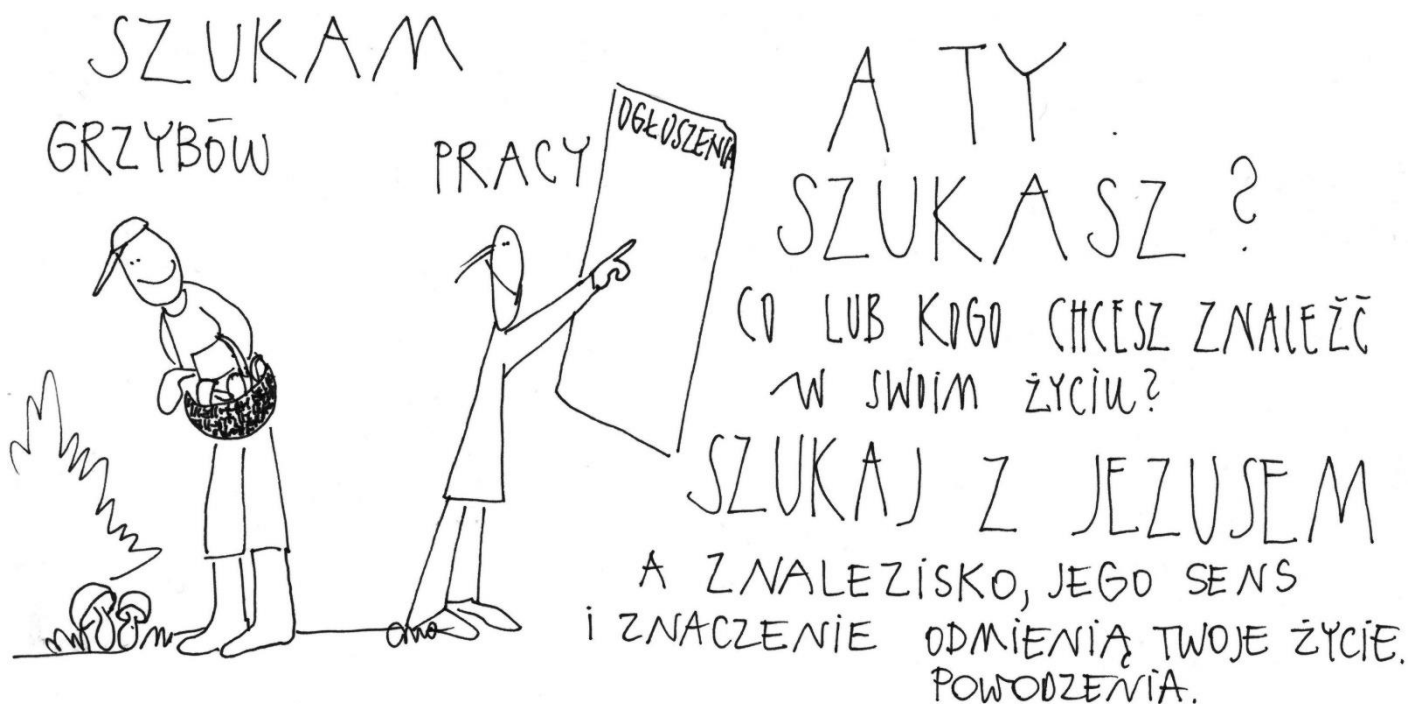 SZUKAM
GRZYBÓW
PRACY
OGŁOSZENIA
A TY
SZUKASZ ?
CO LUB KOGO CHCESZ ZNALEŹĆ
W SWOIM ŻYCIU?
SZUKAJ Z JEZUSEM
A ZNALEZISKO, JEGO SENS
I ZNACZENIE ODMIENIĄ TWOJE ŻYCIE.
POWODZENIA.